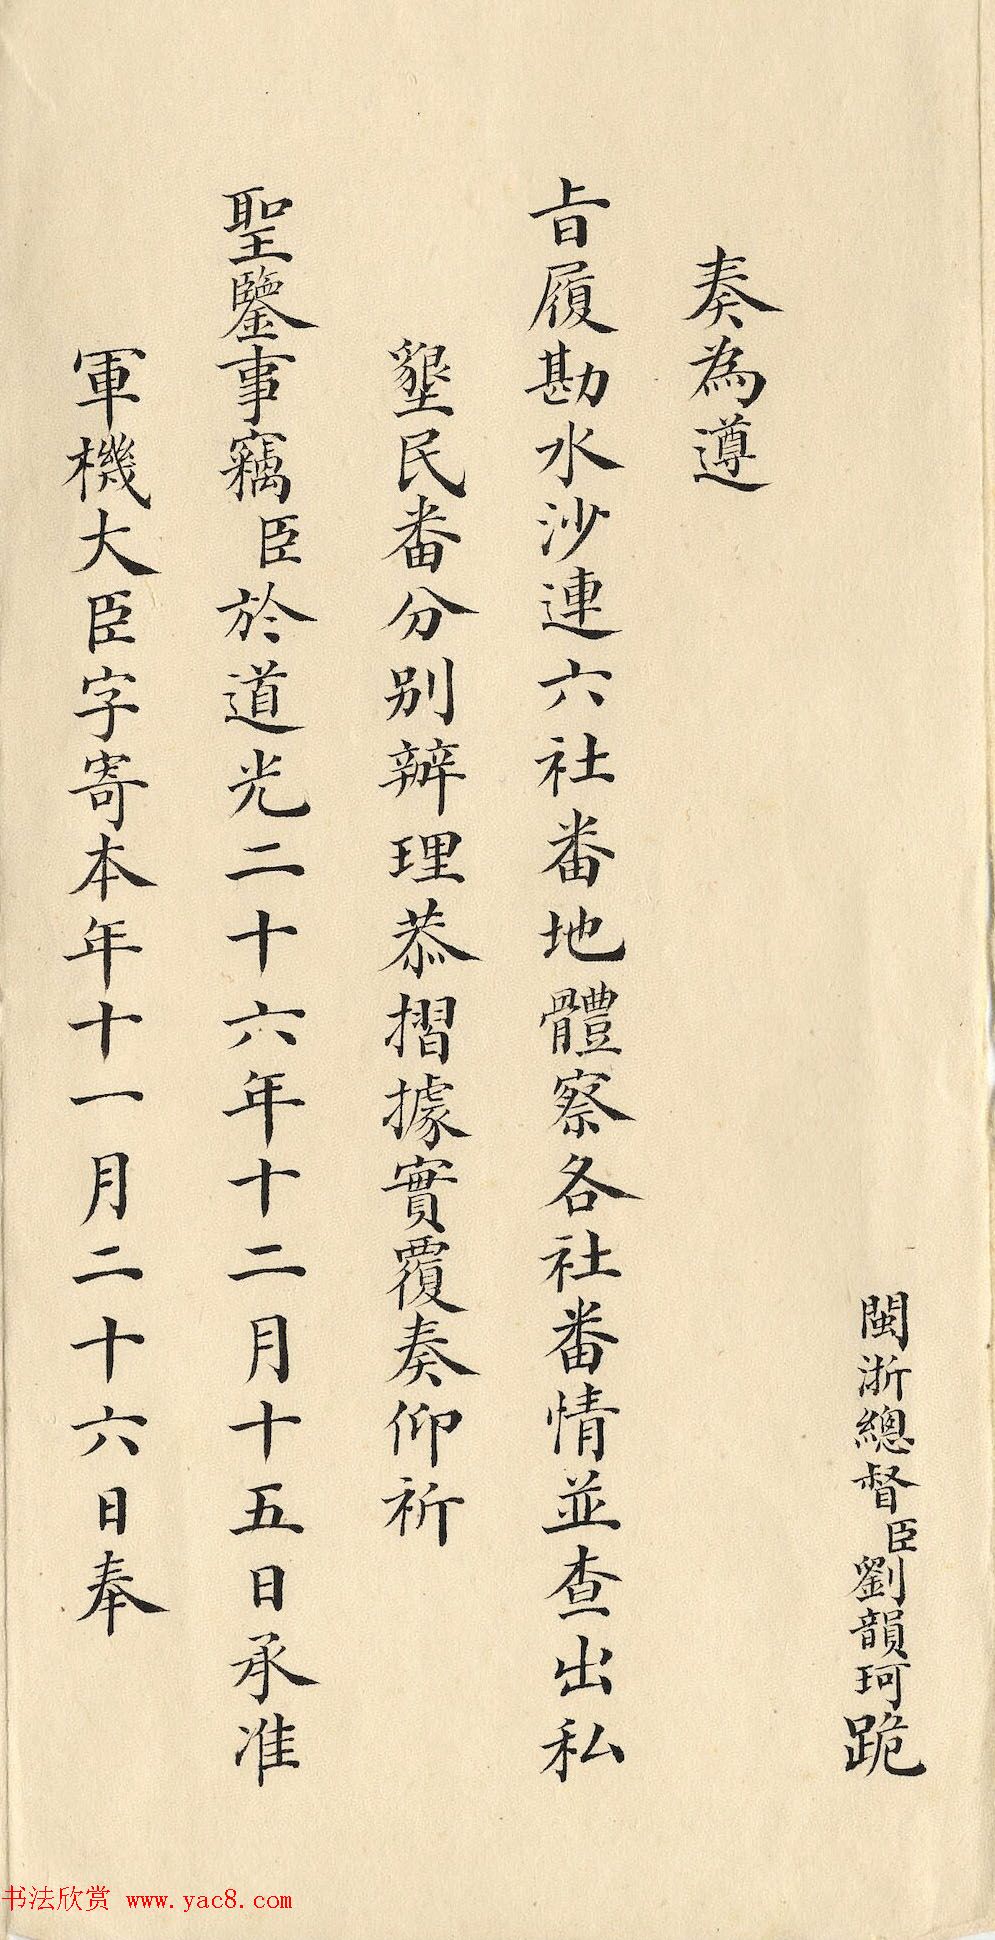 閩浙總督臣劉韻珂跪
奏為遵
旨履勘水沙連六社番地體察各社番情並查出私
墾民番分別辦理恭摺據實覆奏仰祈
聖鑒事竊臣於道光二十六年十二月十五日承准
軍機大臣字寄本年十一月二十六日奉
书法欣赏 www.yac8.com